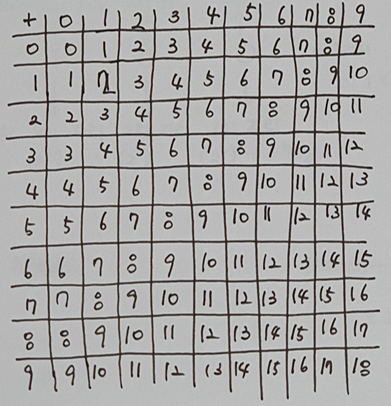 + 0 1 2 3 4 5 6 7 8 9
0 0 1 2 3 4 5 6 7 8 9
1 1 2 3 4 5 6 7 8 9 10
2 2 3 4 5 6 7 8 9 10 11
3 3 4 5 6 7 8 9 10 11 12
4 4 5 6 7 8 9 10 11 12 13
5 5 6 7 8 9 10 11 12 13 14
6 6 7 8 9 10 11 12 13 14 15
7 7 8 9 10 11 12 13 14 15 16
8 8 9 10 11 12 13 14 15 16 17
9 9 10 11 12 13 14 15 16 17 18